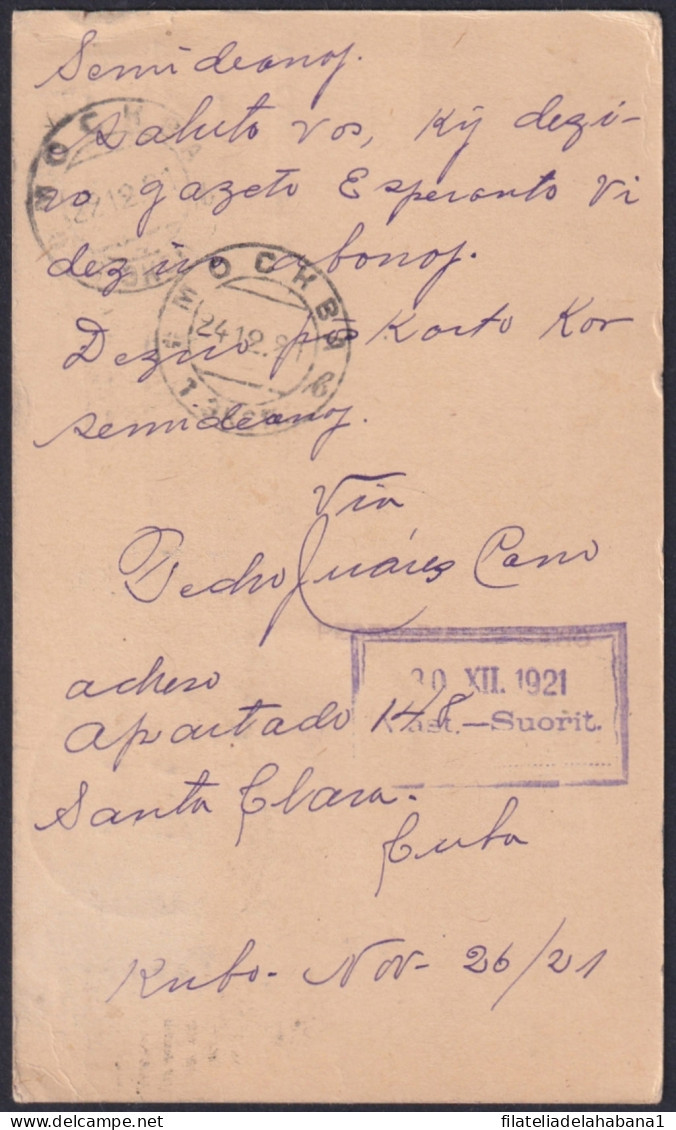 Semideanoj.
Saluto vos, Kij dezi-
ro gazeto Esperanto Vi
deziro abonoj.
Deziro Karto Kor
semideanoj.
Via
Pedro Juárez Cano
adreso
Apartado 148
Santa Clara.
Cuba
Kubo- Nov- 26/21
МОСКВА
24.12.21
МОСКВА
24.12.21
30 XII. 1921
-Suořit.
www.delcampe.net
filateliadelahabana1